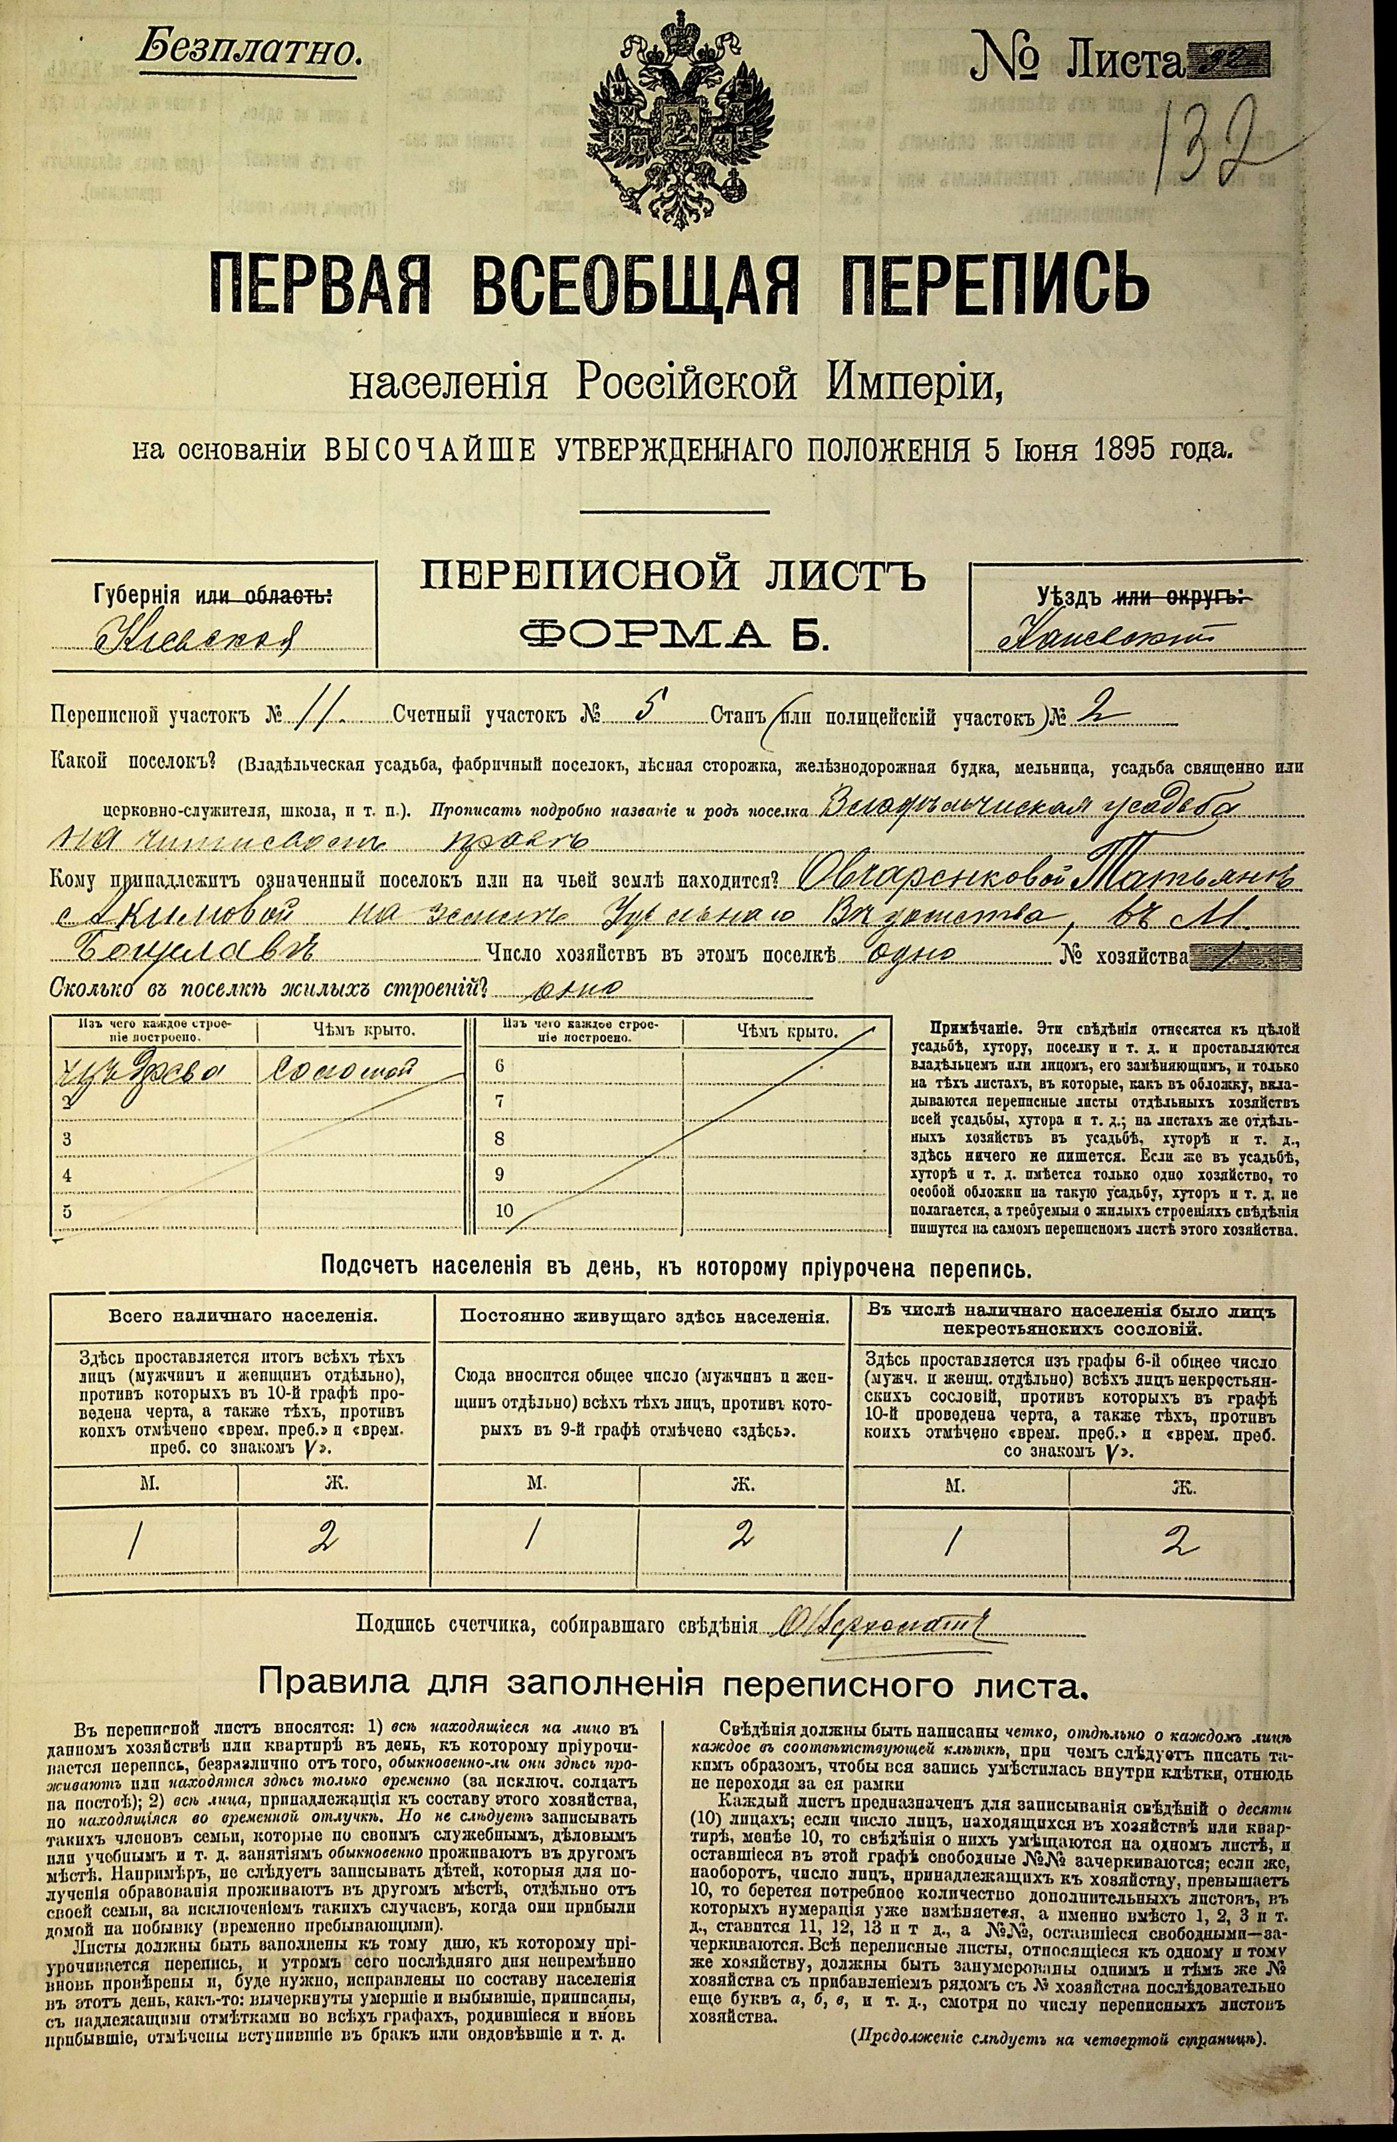 Безплатно.
№ Листа 92
132
ПЕРВАЯ ВСЕОБЩАЯ ПЕРЕПИСЬ
населенія Россійской Имперіи,
на основаніи ВЫСОЧАЙШЕ УТВЕРЖДЕННАГО ПОЛОЖЕНІЯ 5 Іюня 1895 года.
ПЕРЕПИСНОЙ ЛИСТЪ
ФОРМА Б.
Губернія или область:
Кіевская
Уѣздъ или округъ:
Каневскій
Переписной участокъ № 11. Счетный участокъ № 5 Станъ (или полицейскій участокъ) № 2
Какой поселокъ? (Владѣльческая усадьба, фабричный поселокъ, лѣсная сторожка, желѣзнодорожная будка, мельница, усадьба священно или
церковно-служителя, школа, и т. п.). Прописать подробно названіе и родъ поселка Владѣльческая усадьба
на чиншевомъ правѣ
Кому принадлежитъ означенный поселокъ или на чьей землѣ находится? Овчаренковой Татьянѣ
Акимовой на землѣ Удѣльнаго Вѣдомства, въ М.
Богуславѣ Число хозяйствъ въ этомъ поселкѣ одно № хозяйства 1
Сколько въ поселкѣ жилыхъ строеній? одно
Изъ чего каждое строеніе построено. Чѣмъ крыто. Изъ чего каждое строеніе построено. Чѣмъ крыто.
изъ дрова соломой 6
2 7
3 8
4 9
5 10
Примѣчаніе. Эти свѣдѣнія относятся къ цѣлой
усадьбѣ, хутору, поселку и т. д. и проставляются
владѣльцемъ или лицомъ, его замѣняющимъ, и только
на тѣхъ листахъ, въ которые, какъ въ обложку, вкла-
дываются переписные листы отдѣльныхъ хозяйствъ
всей усадьбы, хутора и т. д.; на листахъ же отдѣль-
ныхъ хозяйствъ въ усадьбѣ, хуторѣ и т. д.,
здѣсь ничего не пишется. Если же въ усадьбѣ,
хуторѣ и т. д. имѣется только одно хозяйство, то
особой обложки на такую усадьбу, хуторъ и т. д. не
полагается, а требуемыя о жилыхъ строеніяхъ свѣдѣнія
пишутся на самомъ переписномъ листѣ этого хозяйства.
Подсчетъ населенія въ день, къ которому пріурочена перепись.
Всего наличнаго населенія.
Здѣсь проставляется итогъ всѣхъ тѣхъ
лицъ (мужчинъ и женщинъ отдѣльно),
противъ которыхъ въ 10-й графѣ про-
ведена черта, а также тѣхъ, противъ
коихъ отмѣчено «врем. преб.» и «врем.
преб. со знакомъ V».
М. Ж.
1 2
Постоянно живущаго здѣсь населенія.
Сюда вносится общее число (мужчинъ и жен-
щинъ отдѣльно) всѣхъ тѣхъ лицъ, противъ кото-
рыхъ въ 9-й графѣ отмѣчено «здѣсь».
М. Ж.
1 2
Въ числѣ наличнаго населенія было лицъ
некрестьянскихъ сословій.
Здѣсь проставляется изъ графы 6-й общее число
(мужч. и женщ. отдѣльно) всѣхъ лицъ некрестьян-
скихъ сословій, противъ которыхъ въ графѣ
10-й проведена черта, а также тѣхъ, противъ
коихъ отмѣчено «врем. преб.» и «врем. преб.
со знакомъ V».
М. Ж.
1 2
Подпись счетчика, собиравшаго свѣдѣнія
Правила для заполненія переписного листа.
Въ переписной листъ вносятся: 1) всѣ находящіеся на лицо въ
данномъ хозяйствѣ или квартирѣ въ день, къ которому пріурочи-
вается перепись, безразлично отъ того, обыкновенно-ли они здѣсь про-
живаютъ или находятся здѣсь только временно (за исключ. солдатъ
на постоѣ); 2) всѣ лица, принадлежащія къ составу этого хозяйства,
но находящіяся во временной отлучкѣ. Но не слѣдуетъ записывать
такихъ членовъ семьи, которые по своимъ служебнымъ, дѣловымъ
или учебнымъ и т. д. занятіямъ обыкновенно проживаютъ въ другомъ
мѣстѣ. Напримѣръ, не слѣдуетъ записывать дѣтей, которыя для по-
лученія образованія проживаютъ въ другомъ мѣстѣ, отдѣльно отъ
своей семьи, за исключеніемъ такихъ случаевъ, когда они прибыли
домой на побывку (временно пребывающими).
Листы должны быть заполнены къ тому дню, къ которому прі-
урочивается перепись, и утромъ сего послѣдняго дня непремѣнно
вновь провѣрены и, буде нужно, исправлены по составу населенія
въ этотъ день, какъ-то: вычеркнуты умершіе и выбывшіе, приписаны,
съ надлежащими отмѣтками во всѣхъ графахъ, родившіеся и вновь
прибывшіе, отмѣчены вступившіе въ бракъ или овдовѣвшіе и т. д.
Свѣдѣнія должны быть написаны четко, отдѣльно о каждомъ лицѣ
каждое въ соотвѣтствующей клѣткѣ, при чемъ слѣдуетъ писать та-
кимъ образомъ, чтобы вся запись умѣстилась внутри клѣтки, отнюдь
не переходя за ея рамки
Каждый листъ предназначенъ для записыванія свѣдѣній о десяти
(10) лицахъ; если число лицъ, находящихся въ хозяйствѣ или квар-
тирѣ, менѣе 10, то свѣдѣнія о нихъ умѣщаются на одномъ листѣ, и
оставшіеся въ этой графѣ свободные №№ зачеркиваются; если же,
наоборотъ, число лицъ, принадлежащихъ къ хозяйству, превышаетъ
10, то берется потребное количество дополнительныхъ листовъ, въ
которыхъ нумерація уже измѣняется, а именно вмѣсто 1, 2, 3 и т.
д., ставится 11, 12, 13 и т д., а №№, оставшіеся свободными—за-
черкиваются. Всѣ переписные листы, относящіеся къ одному и тому
же хозяйству, должны быть занумерованы однимъ и тѣмъ же №
хозяйства съ прибавленіемъ рядомъ съ № хозяйства послѣдовательно
еще буквъ а, б, в, и т. д., смотря по числу переписныхъ листовъ
хозяйства.
(Продолженіе слѣдуетъ на четвертой страницѣ).